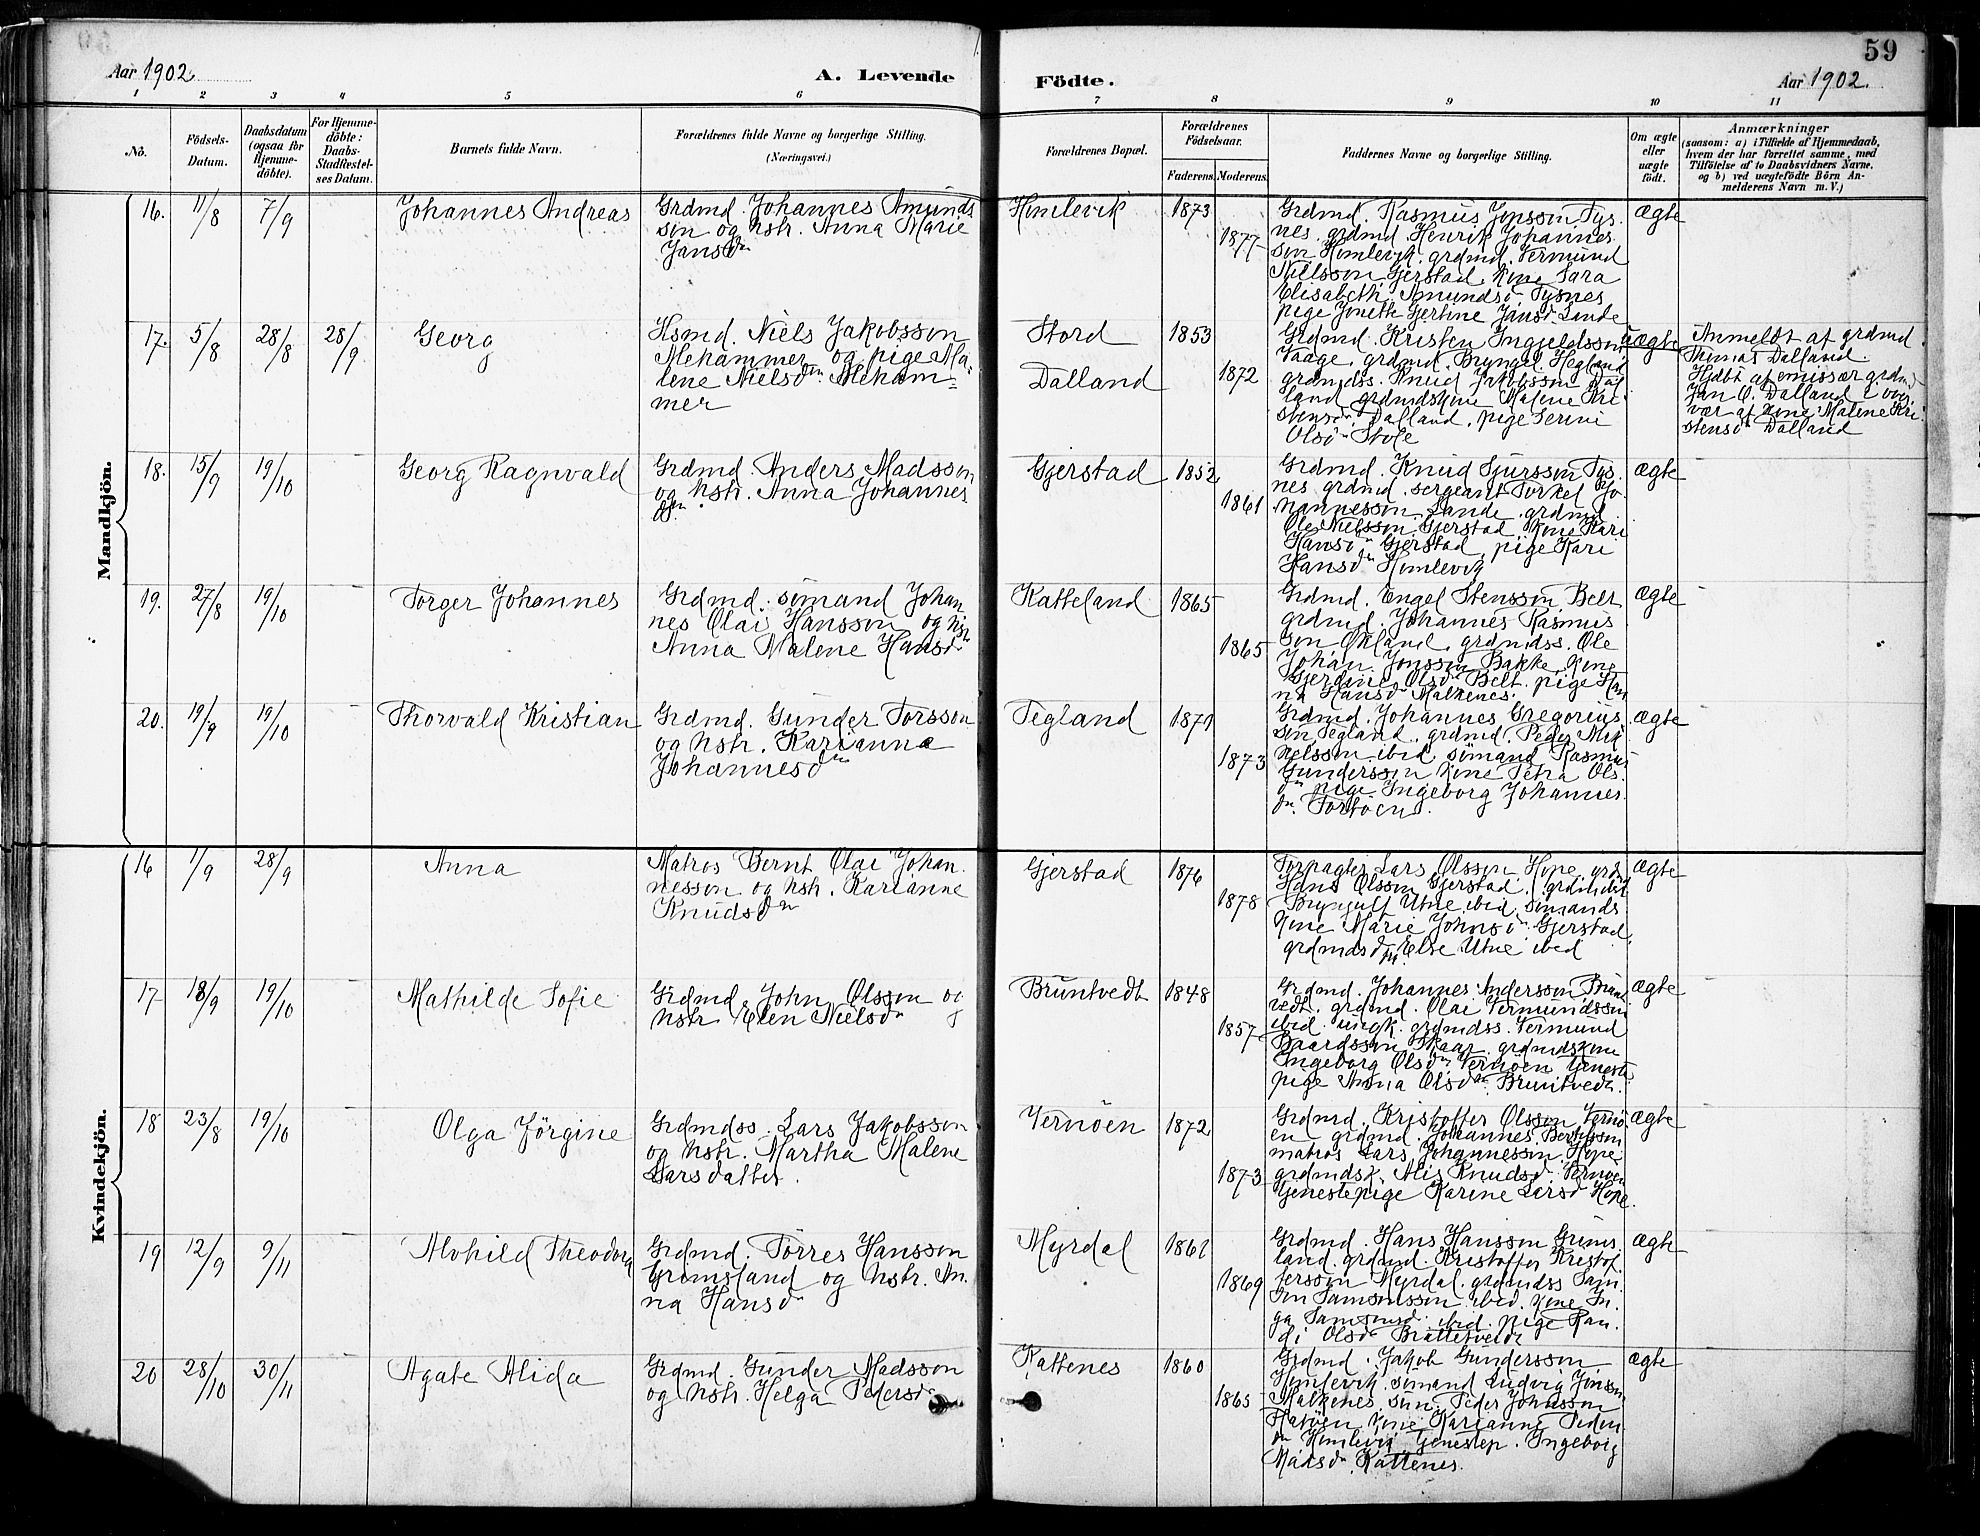 59
Aar 1902.
A. Levende
Födte.
Aar 1902.
1 2 3 4 5 6 7 8 9 10 11
No.
Födsels-
Datum.
Daabsdatum
(ogsaa for
Hjemme-
döbte).
For Hjemme-
döbte:
Daabs-
Stadfæstel-
ses Datum.
Barnets fulde Navn.
Forældrenes fulde Navne og borgerlige Stilling.
(Næringsvei.)
Forældrenes Bopæl.
Forældrenes
Födselsaar.
Faderens.
Moderens.
Faddernes Navne og borgerlige Stilling.
Om ægte
eller
uægte
födt.
Anmærkninger
(saasom: a) i Tilfælde af Hjemmedaab,
hvem der har forrettet samme, med
Tilföielse af to Daabsvidners Navne,
og b) ved uægtefödte Börn An-
melderens Navn m. V.)
Mandkjön.
16. 11/8 7/9 Johannes Andreas
Grdmd. Johannes Amunds
son og hstr. Anna Marie
Jansdn
Himlevik 1873
1877
Grdmd. Rasmus Jonsson Tys-
nes. grdmd. Henrik Johannes
son Himlevik. grdmd. Vermund
Nilsson Gjerstad. kone Sara
Elisabeth Amundsd. Tysnes
pige Jonette Gjertine Jansd. Lande
ægte
17. 5/8 28/8 28/9 Georg
Hsmd. Niels Jakobsson
Mehammer og pige Ma-
lene Nielsdn. Meham-
mer
Stord 1853
Dalland 1872
Grdmd. Kristen Ingjeldsson
Vaage. grdmd. Bryngel Hegland
grdmdss. Knud Jakobsson Dal
land grdmdskone Malene Kri
stensdn. Dalland. pige Serine
Olsdn Stole
uægte
Anmeldt af grdmd
Thomas Dalland.
Hjdbt af emissær grdmd
Jan O. Dalland i over
vær af kone Malene Kri
stensdn Dalland
18. 15/9 19/10 Georg Ragnvald
Grdmd. Anders Madsson
og hstr. Anna Johannes
dn.
Gjerstad 1852
1861
Grdmd. Knud Sjursson Tys-
nes grdmd. sergeant Torkel Jo-
hannesson Lande. grdmd.
Ole Nielsson Gjerstad. kone Kari
Hansdn Gjerstad. pige Kari
Hansdn Himlevik
ægte
19. 27/8 19/10 Torger Johannes
Grdmd. sömand Johan
nes Olai Hansson og hstr
Anna Malene Hansdn
Katteland 1865
1865
Grdmd. Engel Stensson Belt
grdmd. Johannes Rasmus
son Økland. grdmdss. Ole
Johan Jonsson Bakke. kone
Gjerdine Olsdn Belt. pige Han
na Hansdn Malkenes.
ægte
20. 19/9 19/10 Thorvald Kristian
Grdmd. Gunder Torsson
og hstr. Karianne
Johannesdn
Tegland 1871
1873
Grdmd. Johannes Gregorius
son Tegland. grdmd. Peder Mik
kelsson ibid sömand Rasmus
Gundersson kone Petra Ols
dn pige Ingeborg Johannes
dn.
ægte
Kvindekjön.
16 1/9 28/9 Anna
Matros Bernt Olai Johan
nesson og hstr. Karianne
Knudsdn
Gjerstad 1876
1878
Forpagter Lars Olsson Hope. grdmd
Hans Olsson Gjerstad. grdmd
Bryngulf Utne ibid, sömands
kone Marie Johnsdn Gjerstad,
grdmdsdn Else Utne ibid
ægte
17 18/9 19/10 Mathilde Sofie
Grdmd. John Olsson og
hstr. Elen Nielsdn
Bruntvedt 1848
1857
Grdmd. Johannes Andersson Brunt
vedt. grdmd. Olai Vermundsson
ibid. ungk. grdmdss. Vermund
Baardsson Skaar. grdmdskone
Ingeborg Olsdn Vernöen tjeneste
pige Anna Olsdn Bruntvedt.
ægte
18 23/8 19/10 Olga Jörgine
Grdmdss. Lars Jakobsson
og hstr. Martha Malene
Larsdatter.
Vernöen 1872
1873
Grdmd. Kristoffer Olsson Vernö
en grdmd. Johannes Bertsson
matros Lars Johannesson Hope
grdmdsk. Alis Knudsd. Vernöen
tjenestepige Karine Larsd Hope
ægte
19 12/9 9/11 Alvhild Theodora
Grdmd. Törres Hansson
Grimsland og hstr. An-
na Hansdn
Myrdal 1861
1869
Grdmd. Hans Hansson Grims
land. grdmd. Kristoffer Kristof
fersson Myrdal. grdmdss Sam
son Samsonsson ibid. kone In-
ga Samsonsd. ibid. pige Ran-
di Olsdn Brattetveit
ægte
20 28/10 30/11 Agate Alida
Grdmd. Gunder Madsson
og hstr. Helga Pedersdn
Kattenes 1860
1865
Grdmd. Jakob Gundersson
Himlevik. sömand Ludvig Jonsson
Malkenes, sön. Peder Johnsson
kone Karianne Peders
dn Himlevik. tjenestep. Ingeborg
Madsdn Kattenes.
ægte